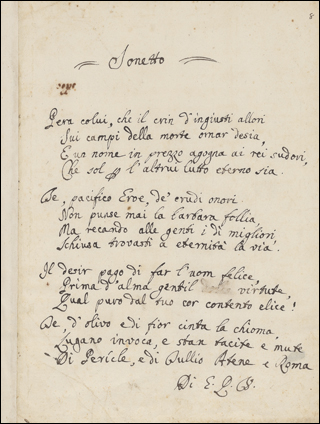 8
Sonetto
Pera colui, che il crin d'ingiusti allori
Sui campi della morte ornar desia,
E un nome in prezzo agogna ai rei sudori,
Che sol p l'altrui lutto eterno sia.
Te, pacifico Eroe, de' crudi onori
Non punse mai la barbara follia,
Ma recando alle genti i dì migliori
Schiusa trovasti a eternità la via.
Il desir pago di far l'uom felice,
Prima d'alma gentil virtute,
Qual puro dal tuo cor contento elice!
Te, d'olivo e di fior cinta la chioma,
Lugano invoca, e stan tacite e mute
Di Pericle, e di Tullio Atene e Roma
Di